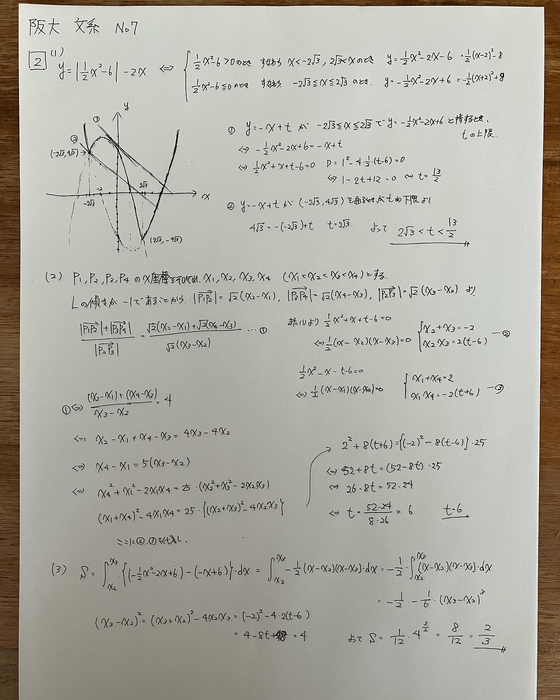 阪大 文系 No7
2 (1)
y=|1/2x²-6|-2x ⇔ { 1/2x²-6>0のとき すなわち x<-2√3, 2√3<xのとき y=1/2x²-2x-6 =1/2(x-2)²-8
1/2x²-6≦0のとき すなわち -2√3≦x≦2√3のとき、 y=-1/2x²-2x+6 =-1/2(x+2)²+8
y
①
②
(-2√3,4√3)
-2√3
-2
2√3
x
(2√3,-4√3)
① y=-x+t が -2√3≦x≦2√3 で y=-1/2x²-2x+6 と接するとき、
tの上限
⇔ -1/2x²-2x+6=-x+t
⇔ 1/2x²+x+t-6=0 D=1²-4・1/2(t-6)=0
⇔ 1-2t+12=0 ⇔ t=13/2
② y=-x+t が (-2√3,4√3) を通るときがtの下限より
4√3=-(-2√3)+t t=2√3 よって 2√3<t<13/2
(2) P₁,P₂,P₃,P₄のx座標をそれぞれ x₁,x₂,x₃,x₄ (x₁<x₂<x₃<x₄)とする。
Lの傾きが-1であることから |P₁P₂|=√2(x₂-x₁), |P₃P₄|=√2(x₄-x₃), |P₂P₃|=√2(x₃-x₂) より
|P₁P₂|+|P₃P₄| / |P₂P₃| = √2(x₂-x₁)+√2(x₄-x₃) / √2(x₃-x₂) …①
より 1/2x²+x+t-6=0
⇔ 1/2(x-x₂)(x-x₃)=0 { x₂+x₃=-2
x₂x₃=2(t-6) -②
1/2x²-x-t-6=0
⇔ 1/2(x-x₁)(x-x₄)=0 { x₁+x₄=2
x₁x₄=-2(t+6) -③
①⇔ (x₂-x₁)+(x₄-x₃) / x₃-x₂ = 4
⇔ x₂-x₁+x₄-x₃=4x₃-4x₂
⇔ x₄-x₁=5(x₃-x₂)
⇔ x₄²+x₁²-2x₁x₄=25・(x₂²+x₃²-2x₂x₃)
(x₁+x₄)²-4x₁x₄=25・{(x₂+x₃)²-4x₂x₃}
ここに②,③を代入し、
2²+8(t+6)={(-2)²-8(t-6)}・25
⇔ 52+8t=(52-8t)・25
⇔ 26・8t=52・24
⇔ t=52・24/8・26=6 t=6
(3) S=∫x₂x₃{(-1/2x²-2x+6)-(-x+6)}・dx = ∫x₂x₃-1/2(x-x₂)(x-x₃)・dx=-1/2・∫x₂x₃(x-x₂)(x-x₃)・dx
=-1/2・-1/6・(x₃-x₂)³
(x₃-x₂)²=(x₂+x₃)²-4x₂x₃=(-2)²-4・2(t-6)
=4-8t+48=4
よって S=1/12・4^(3/2)=8/12=2/3